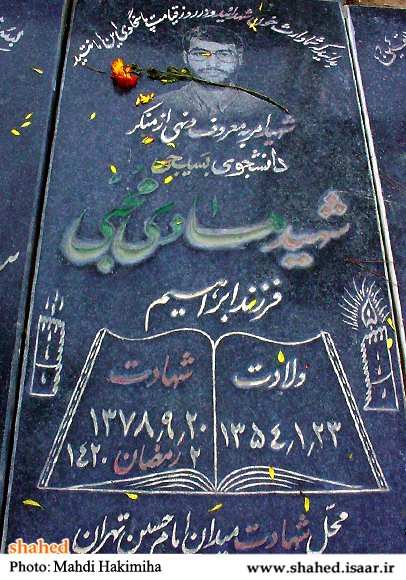 شهید امر به معروف و نهی از منکر
دانشجوی بسیجی
شهید هادی محبی
فرزند ابراهیم
ولادت
۱۳۵۴٫۱٫۲۳
شهادت
۱۳۷۸٫۹٫۲۰
۲ رمضان ۱۴۲۰
محل شهادت میدان امام حسین تهران
shahed
Photo: Mahdi Hakimiha
www.shahed.isaar.ir